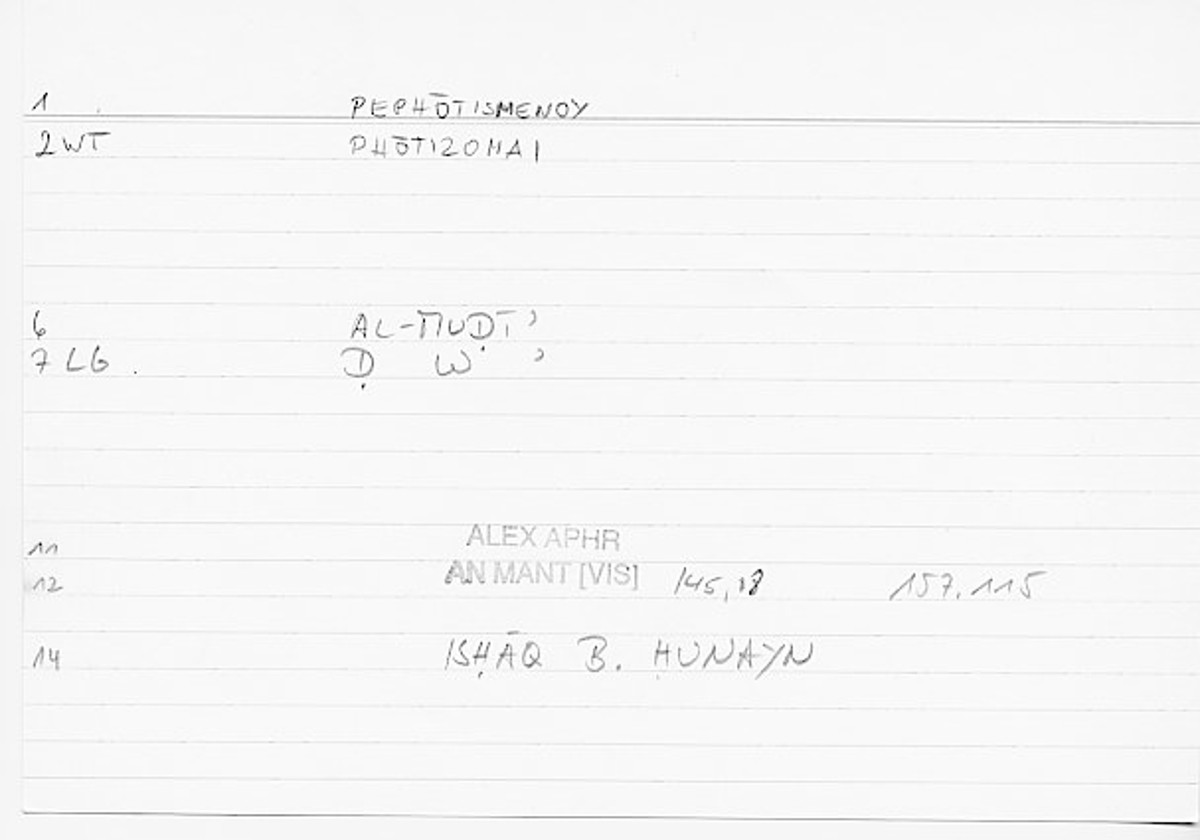 1 PEPHŌTISMENOY
2 WT PHŌTIZOMAI
6 AL-MUḌĪʾ
7 LG. Ḍ W ʾ
11 ALEX APHR
12 AN MANT [VIS] 145,18 157.115
14 ISḤĀQ B. ḤUNAYN